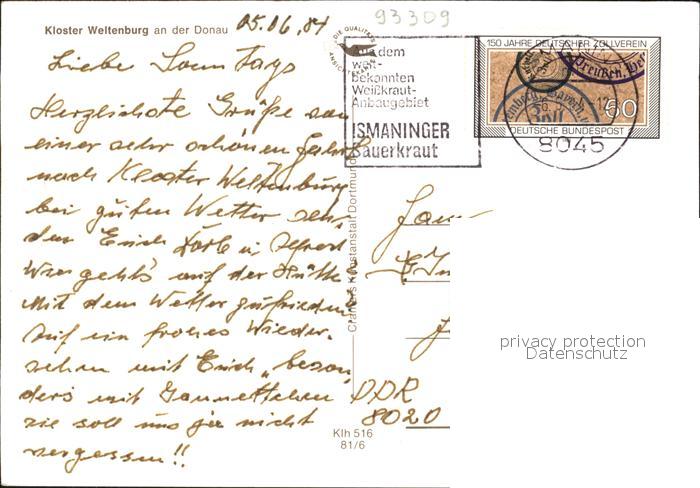 93309
Kloster Weltenburg an der Donau 05.06.84
DIE QUALITÄTS
ANSICHTSKARTE
Aus dem
welt-
bekannten
Weißkraut-
Anbaugebiet
ISMANINGER
Sauerkraut
150 JAHRE DEUTSCHER ZOLLVEREIN
Preußen
60
DEUTSCHE BUNDESPOST
8045
Liebe Sonntags
Herzlichste Grüße von
einer sehr schönen Fahrt
nach Kloster Weltenburg
bei guten Wetter
den Euch u. Alfred
Wie geht's auf der Hütte
Mit dem Wetter zufrieden
Auf ein frohes Wieder-
sehen mit Euch „beson
ders mit Jannettchen
sie soll uns ja nicht
vergessen!!
Cramers Kunstanstalt Dortmund
Fam
DDR
8020
Klh 516
81/6
privacy protection
Datenschutz